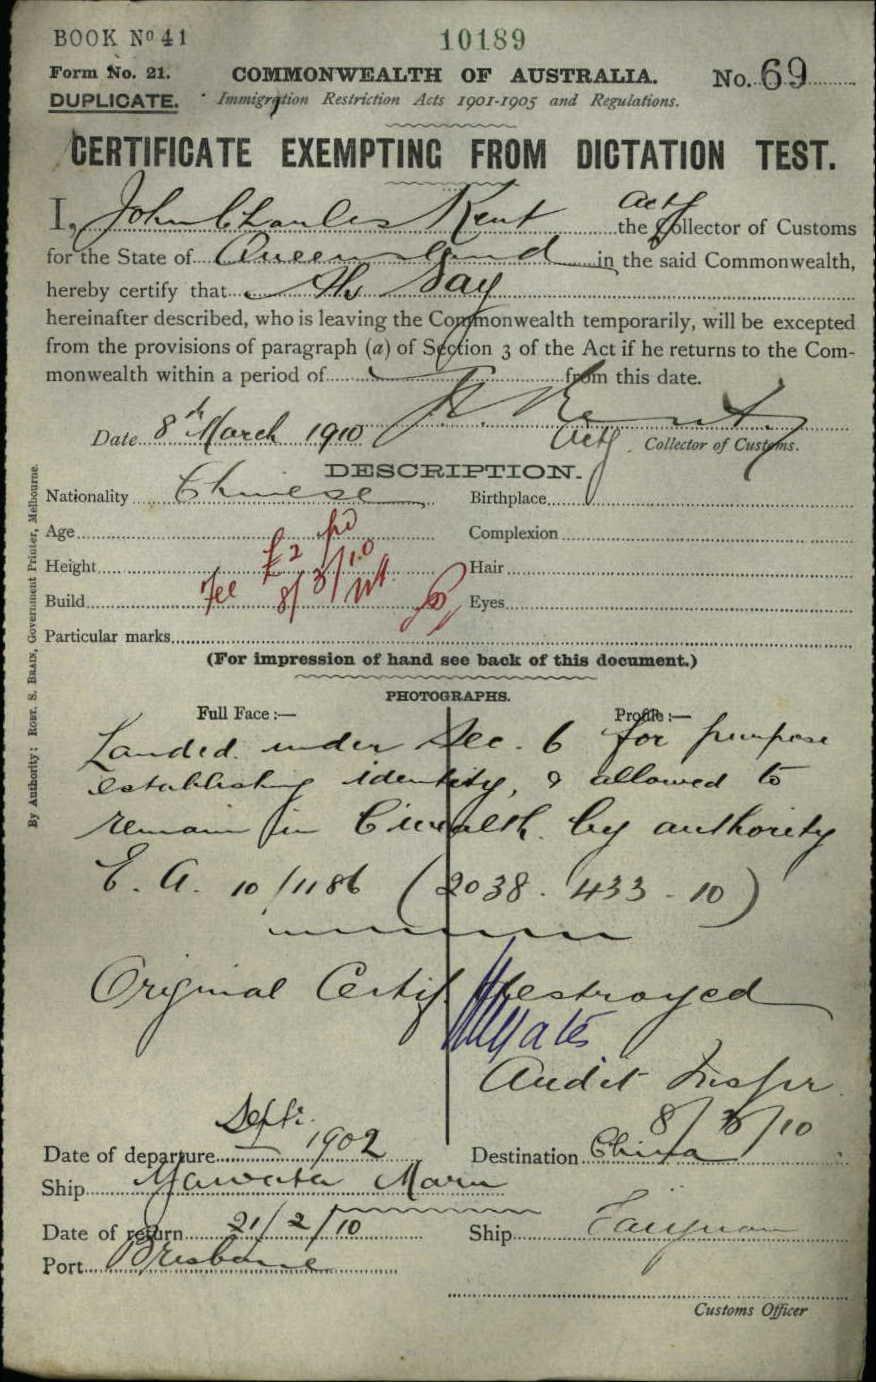 BOOK No 41
10189
Form No. 21.
COMMONWEALTH OF AUSTRALIA.
No. 69
DUPLICATE.
Immigration Restriction Acts 1901-1905 and Regulations.
CERTIFICATE EXEMPTING FROM DICTATION TEST.
I, John Charles Kent Actg the Collector of Customs
for the State of Queensland in the said Commonwealth,
hereby certify that Ah Day
hereinafter described, who is leaving the Commonwealth temporarily, will be excepted
from the provisions of paragraph (a) of Section 3 of the Act if he returns to the Com-
monwealth within a period of from this date.
Date 8th March 1910
Kent
Actg. Collector of Customs.
DESCRIPTION.
Nationality Chinese
Birthplace
Age
Complexion
Height
Hair
Fee £2 pd
8/3/10
Build
Eyes
Particular marks
(For impression of hand see back of this document.)
PHOTOGRAPHS.
Full Face :—
Profile :—
Landed under Sec. 6 for purpose
establishing identity, & allowed to
remain in C'wealth by authority
E. A. 10/1186 (2038 - 433 - 10)
Original Certif. destroyed
Audit Inspr
8/3/10
Date of departure Sept. 1902
Destination China
Ship Yawata Maru
Date of return 21/2/10
Ship Taiyuan
Port Brisbane
Customs Officer
By Authority: ROBT. S. BRAIN, Government Printer, Melbourne.